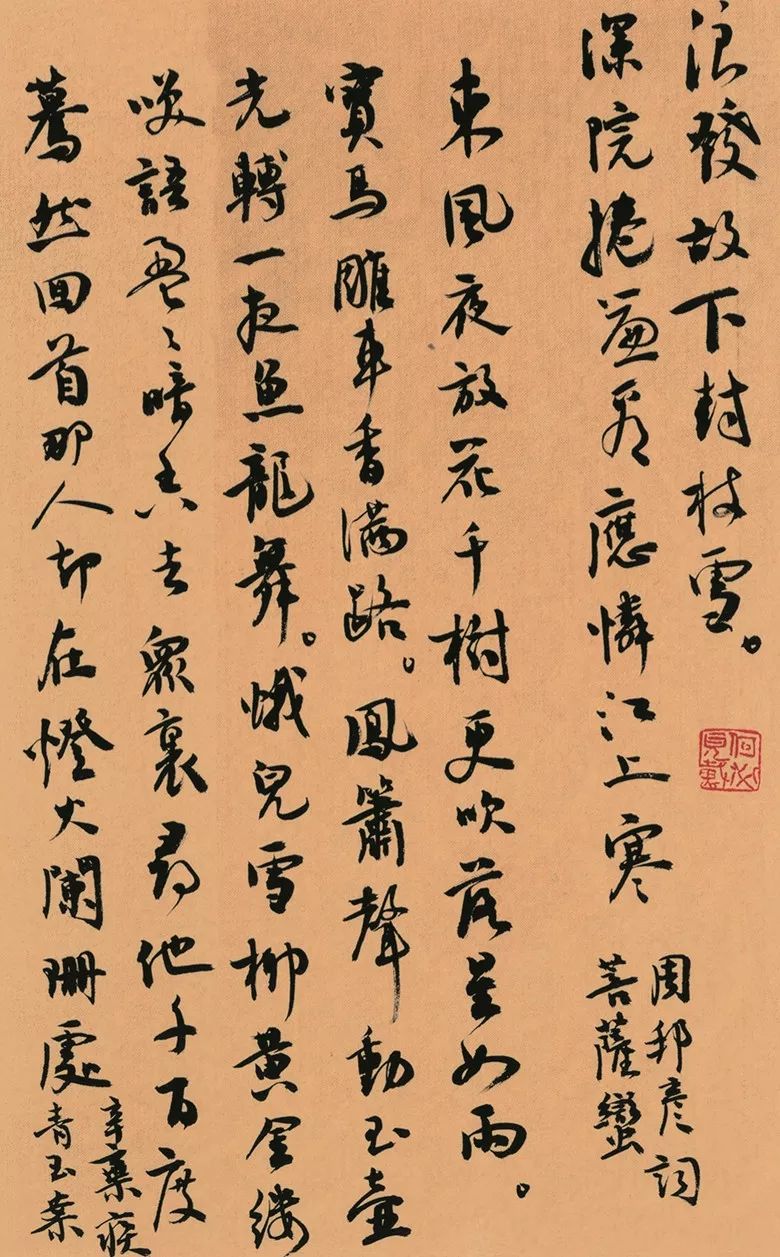 浪發故下封枝雪。
深院捲簾看應憐江上寒
周邦彥詞
菩薩蠻
東風夜放花千樹更吹落星如雨。
寶馬雕車香滿路。鳳簫聲動玉壺
光轉一夜魚龍舞。蛾兒雪柳黃金縷
笑語盈〻暗香去眾裏尋他千百度
驀然回首那人却在燈火闌珊處
辛棄疾
青玉案